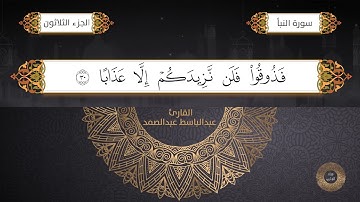 سورة النبأ
الجزء الثلاثون
فَذُوقُوا۟ فَلَن نَّزِيدَكُمْ إِلَّا عَذَابًا ٣٠
القارئ
عبدالباسط عبدالصمد